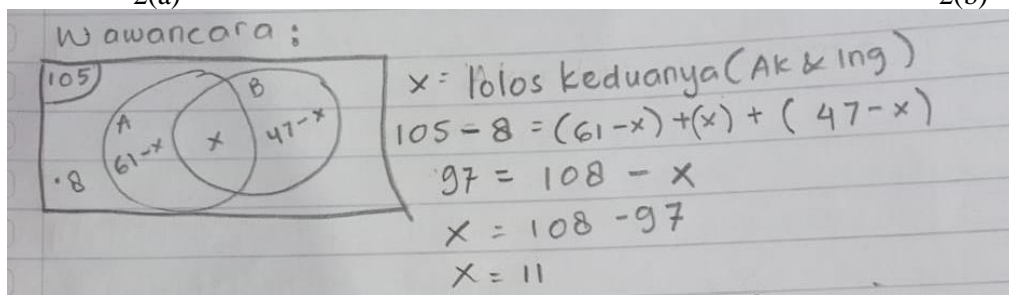 2(a) 2(b)
Wawancara :
105
A
B
61-x
x
47-x
.8
x = lolos keduanya (AK & Ing)
105 - 8 = (61-x) + (x) + (47-x)
97 = 108 - x
x = 108 - 97
x = 11